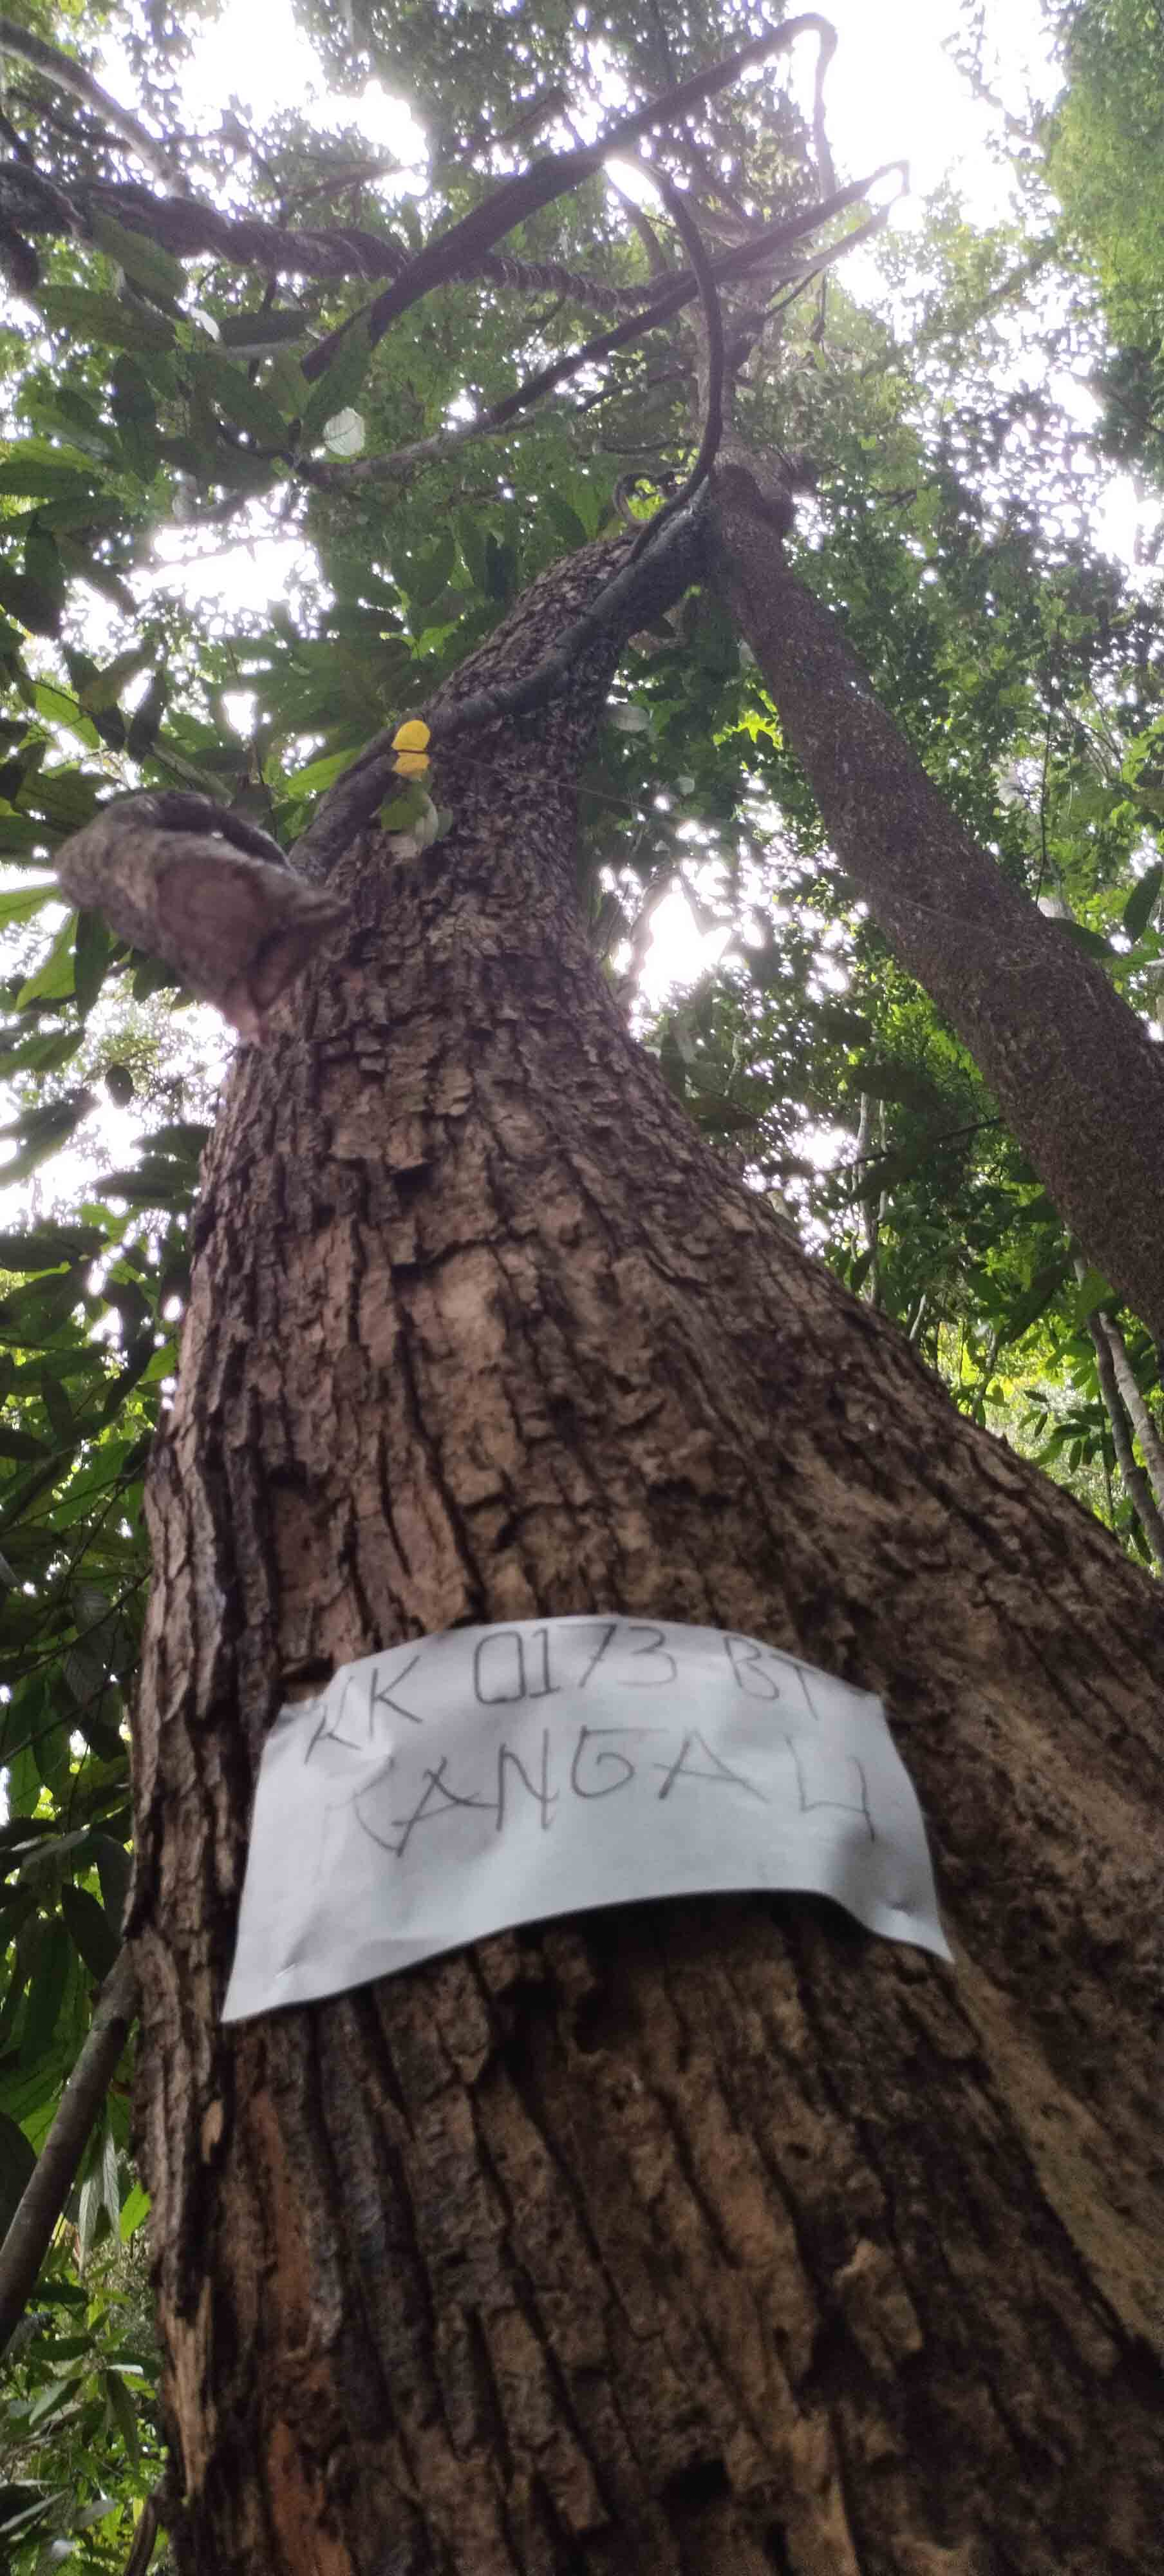 KK 0173 BT
KANGALI